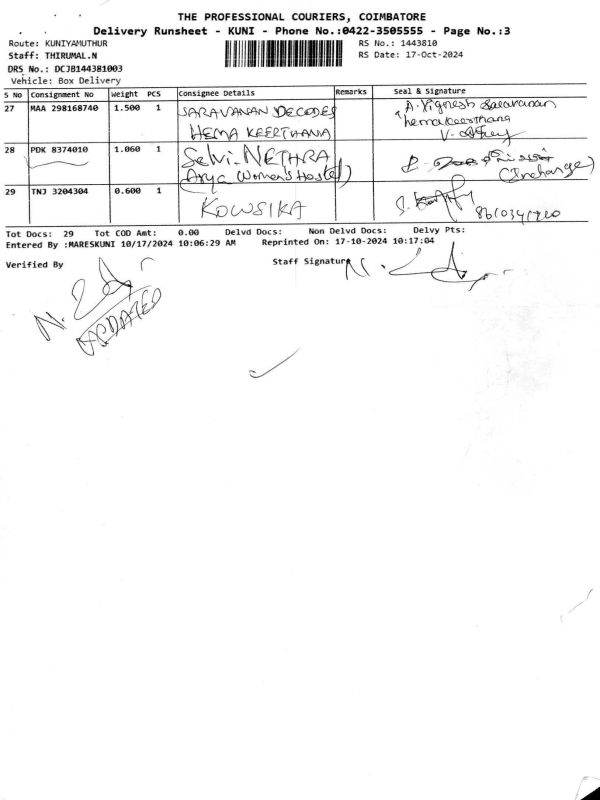 THE PROFESSIONAL COURIERS, COIMBATORE
Delivery Runsheet - KUNI - Phone No.:0422-3505555 - Page No.:3
Route: KUNIYAMUTHUR RS No.: 1443810
Staff: THIRUMAL.N RS Date: 17-Oct-2024
DRS No.: DCJB144381003
Vehicle: Box Delivery
S No Consignment No Weight PCS Consignee Details Remarks Seal & Signature
27 MAA 298168740 1.500 1 SARAVANAN DECODES A. Vignesh Saravanan
HEMA KEERTHANA hemakeerthana
28 PDK 8374010 1.060 1 Selvi. NETHRA
Arya (Women's Hostel) (Incharge)
29 TNJ 3204304 0.600 1 KOWSIKA
Tot Docs: 29 Tot COD Amt: 0.00 Delvd Docs: Non Delvd Docs: Delvy Pts:
Entered By :MARESKUNI 10/17/2024 10:06:29 AM Reprinted On: 17-10-2024 10:17:04
Verified By Staff Signature
UPDATED